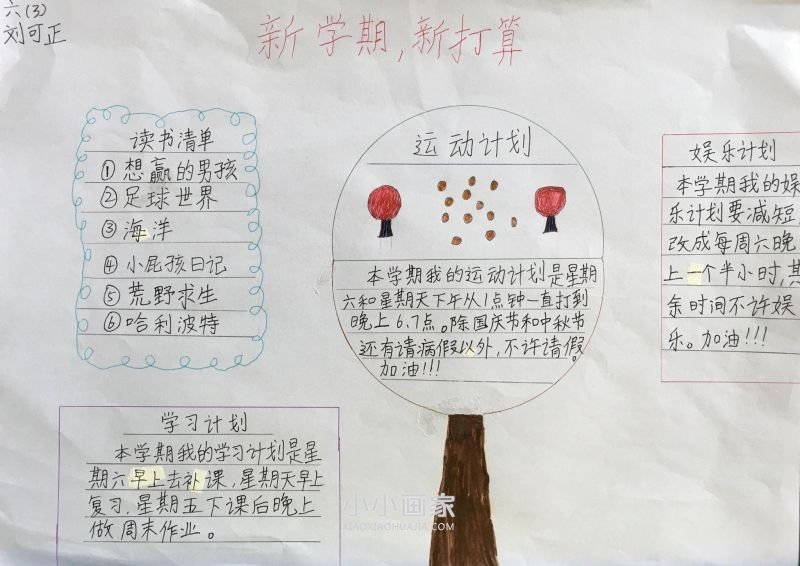 六(3)
刘可正
新学期,新打算
读书清单
①想赢的男孩
②足球世界
③海洋
④小屁孩日记
⑤荒野求生
⑥哈利波特
运动计划
本学期我的运动计划是星期
六和星期天下午从1点钟一直打到
晚上6.7点。除国庆节和中秋节
还有请病假以外,不许请假。
加油!!!
娱乐计划
本学期我的娱
乐计划要减短,
改成每周六晚
上一个半小时,其
余时间不许娱
乐。加油!!!
学习计划
本学期我的学习计划是星
期六早上去补课,星期天早上
复习,星期五下课后晚上
做周末作业。
小小画家
XIAOXIAOHUAJIA.COM